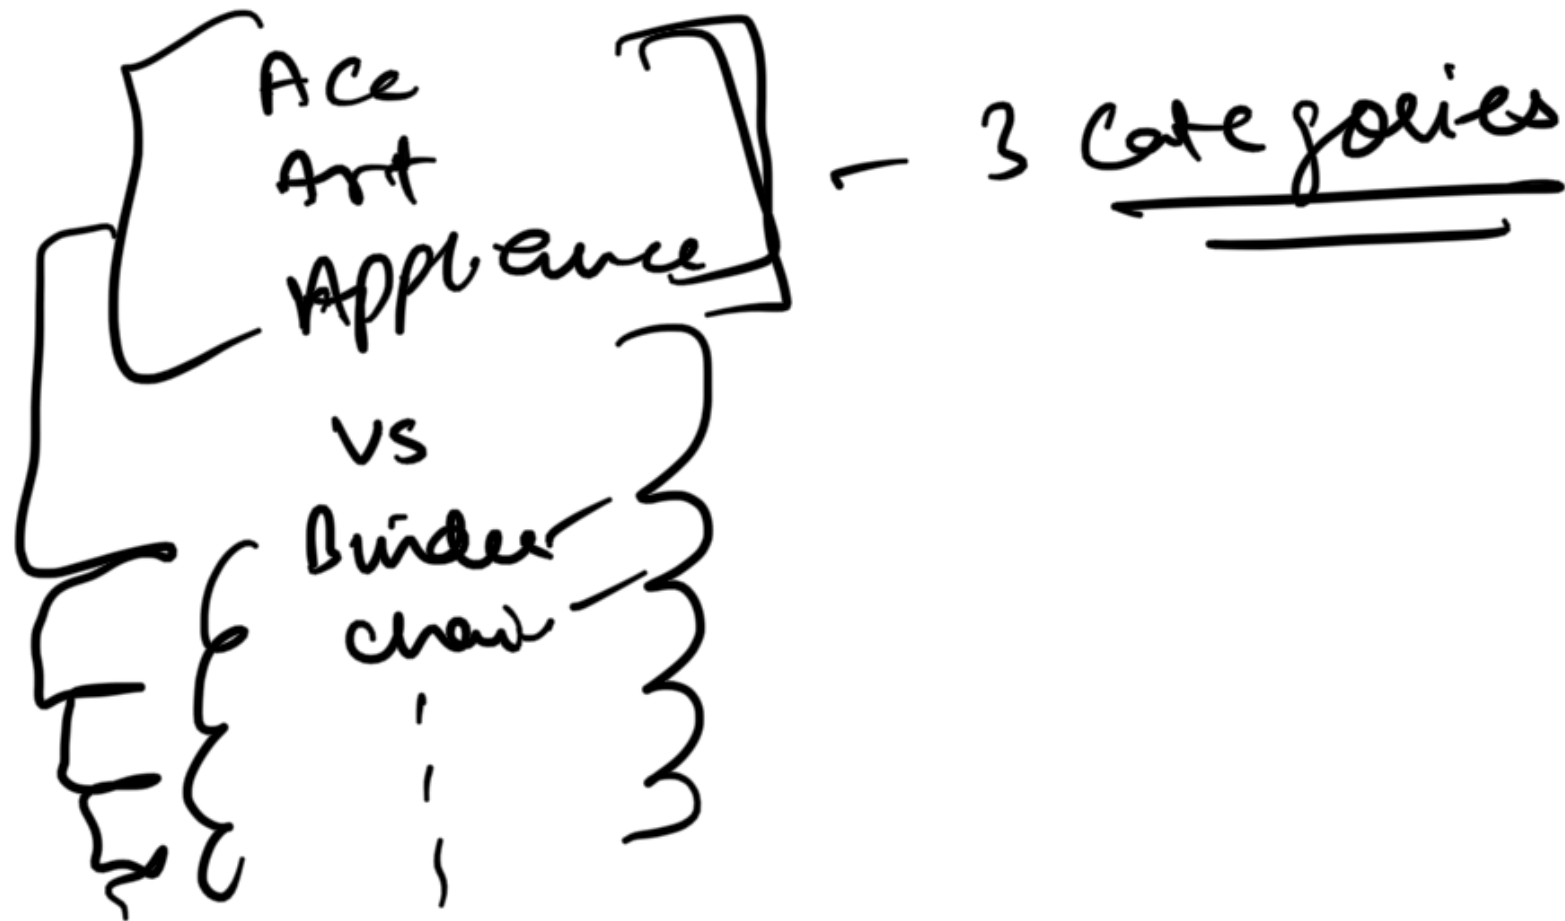 Ace
Art
Appliance
- 3 categories
vs
Binder
chair